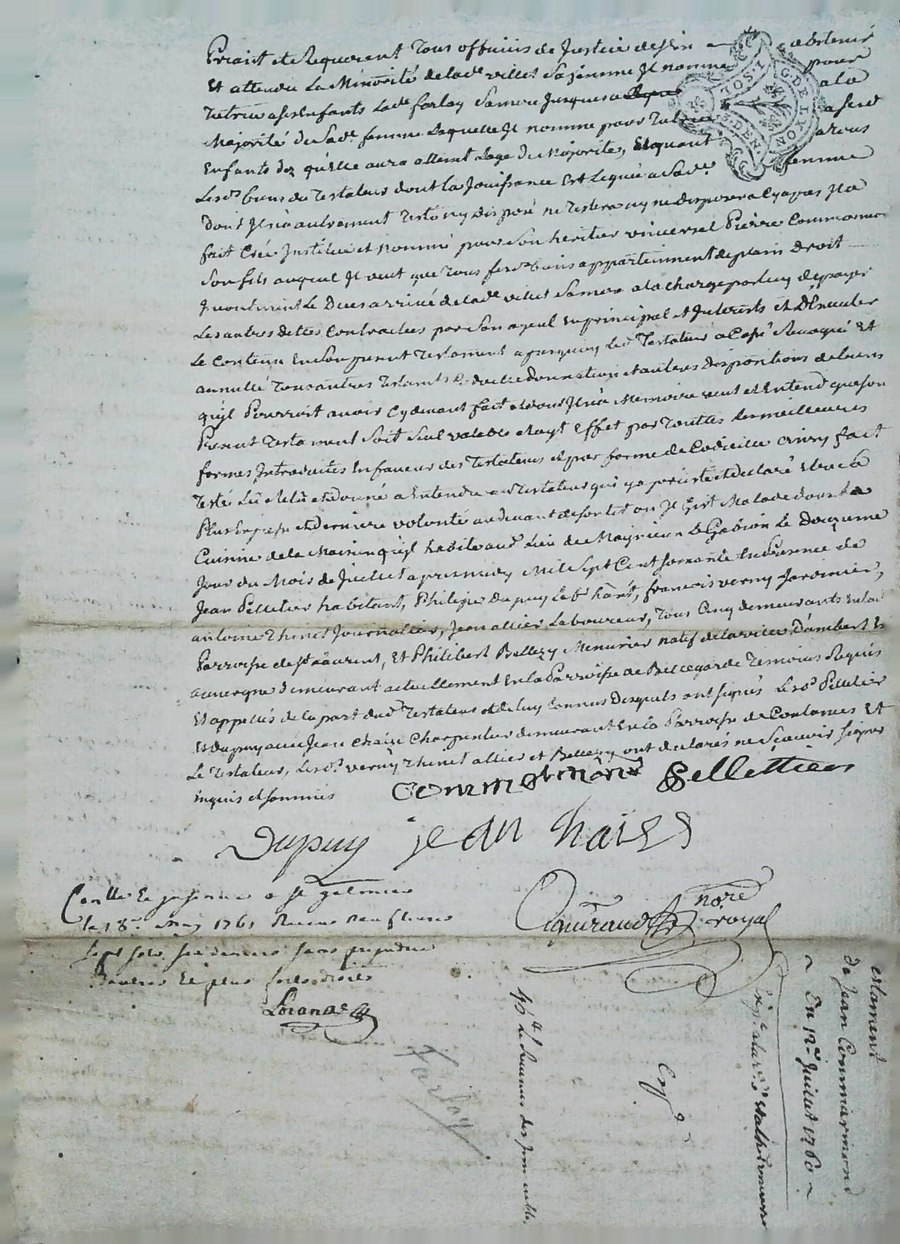 Priant et Requerant Tous officiers de Justice de s'en abstenir
Et attendu La Minorité de lade villet Sa femme Il nomme pour
Tutrice a ses Enfants Lade farlay Sa mere Jusques a la
Majorité de Sade femme Laquelle Il nomme pour Tutrice a sesd
Enfants dez qu'Elle aura atteint Lage de Majorité, Et quant a tous
Lesds biens du Testateur dont la Jouissance Est Leguée a Sade femme
dont Il n'a autrement Testé ny disposé ne Testera ny ne disposera Cy apres Il a
fait Créé Institué et nommé pour Son heritier universel Pierre Commarmond
Son fils auquel Il veut que Tous sesds biens appartiennent de plain droit
Incontinent Le Deces arrivé de lade villet Sa mere a la charge par luy de payer
Les autres dettes Contractées par Son ayeul En principal et Interets et D'Executer
Le Contenu En Son present Testament a Led Testateur a Cassé Revoqué Et
annullé Tous autres Testaments donnation et autres dispositions de biens
qu'Il Pourroit avoir Cy devant fait et dont Il n'a Memoire veut et Entend que Son
Present Testament Soit Seul valable et ayt Effet par Toutes les meilleures
formes Introduites En faveur des Testateurs et par forme de Codicille ainsy fait
Testé Lu Relu et donné a Entendre au Testateur qui y a persisté et declaré Etre Sa
Plus Expresse et derniere volonté au devant de son lit ou Il Gist Malade dans La
Cuisine de la Maison qu'Il habite aud Lieu de Le Gabion Le douzieme
Jour du Mois de Juillet apres midy Mil Sept Cent Soixante En Presence de
Jean Pelletier habitant, Philipe Dupuy francois verny Jardinier,
antoine Thinet Journallier, Jean allier Laboureur, Tous Cinq demeurants En lad
Parroisse de St Laurent, Et Philibert Bellezy Menusier natif de la ville D'ambert En
auvergne demeurant actuellement En la Parroisse de Bellegarde Temoins Requis
Et appellés de la part dud Testateur et de luy Connus Desquels ont signés Lesds Pelletier
Et dupuy avec Jean chaize Charpentier demeurant En la Parroisse de Et
Le Testateur, Lesds verny Thinet allier et Bellezy ont declarés ne Scavoir Signer
enquis et sommés Commarmond Pellettier
Dupuy jean haize
nore
royal
Contlle a St galmier
le 18 May 1761 Recu neuf livres
sept sols six deniers sans prejudice
d'autres et plus forts droits
G. DE LYON
DEN.
Farlay
Expe
estament
de Jean Commarmond
Du 12e Juillet 1760